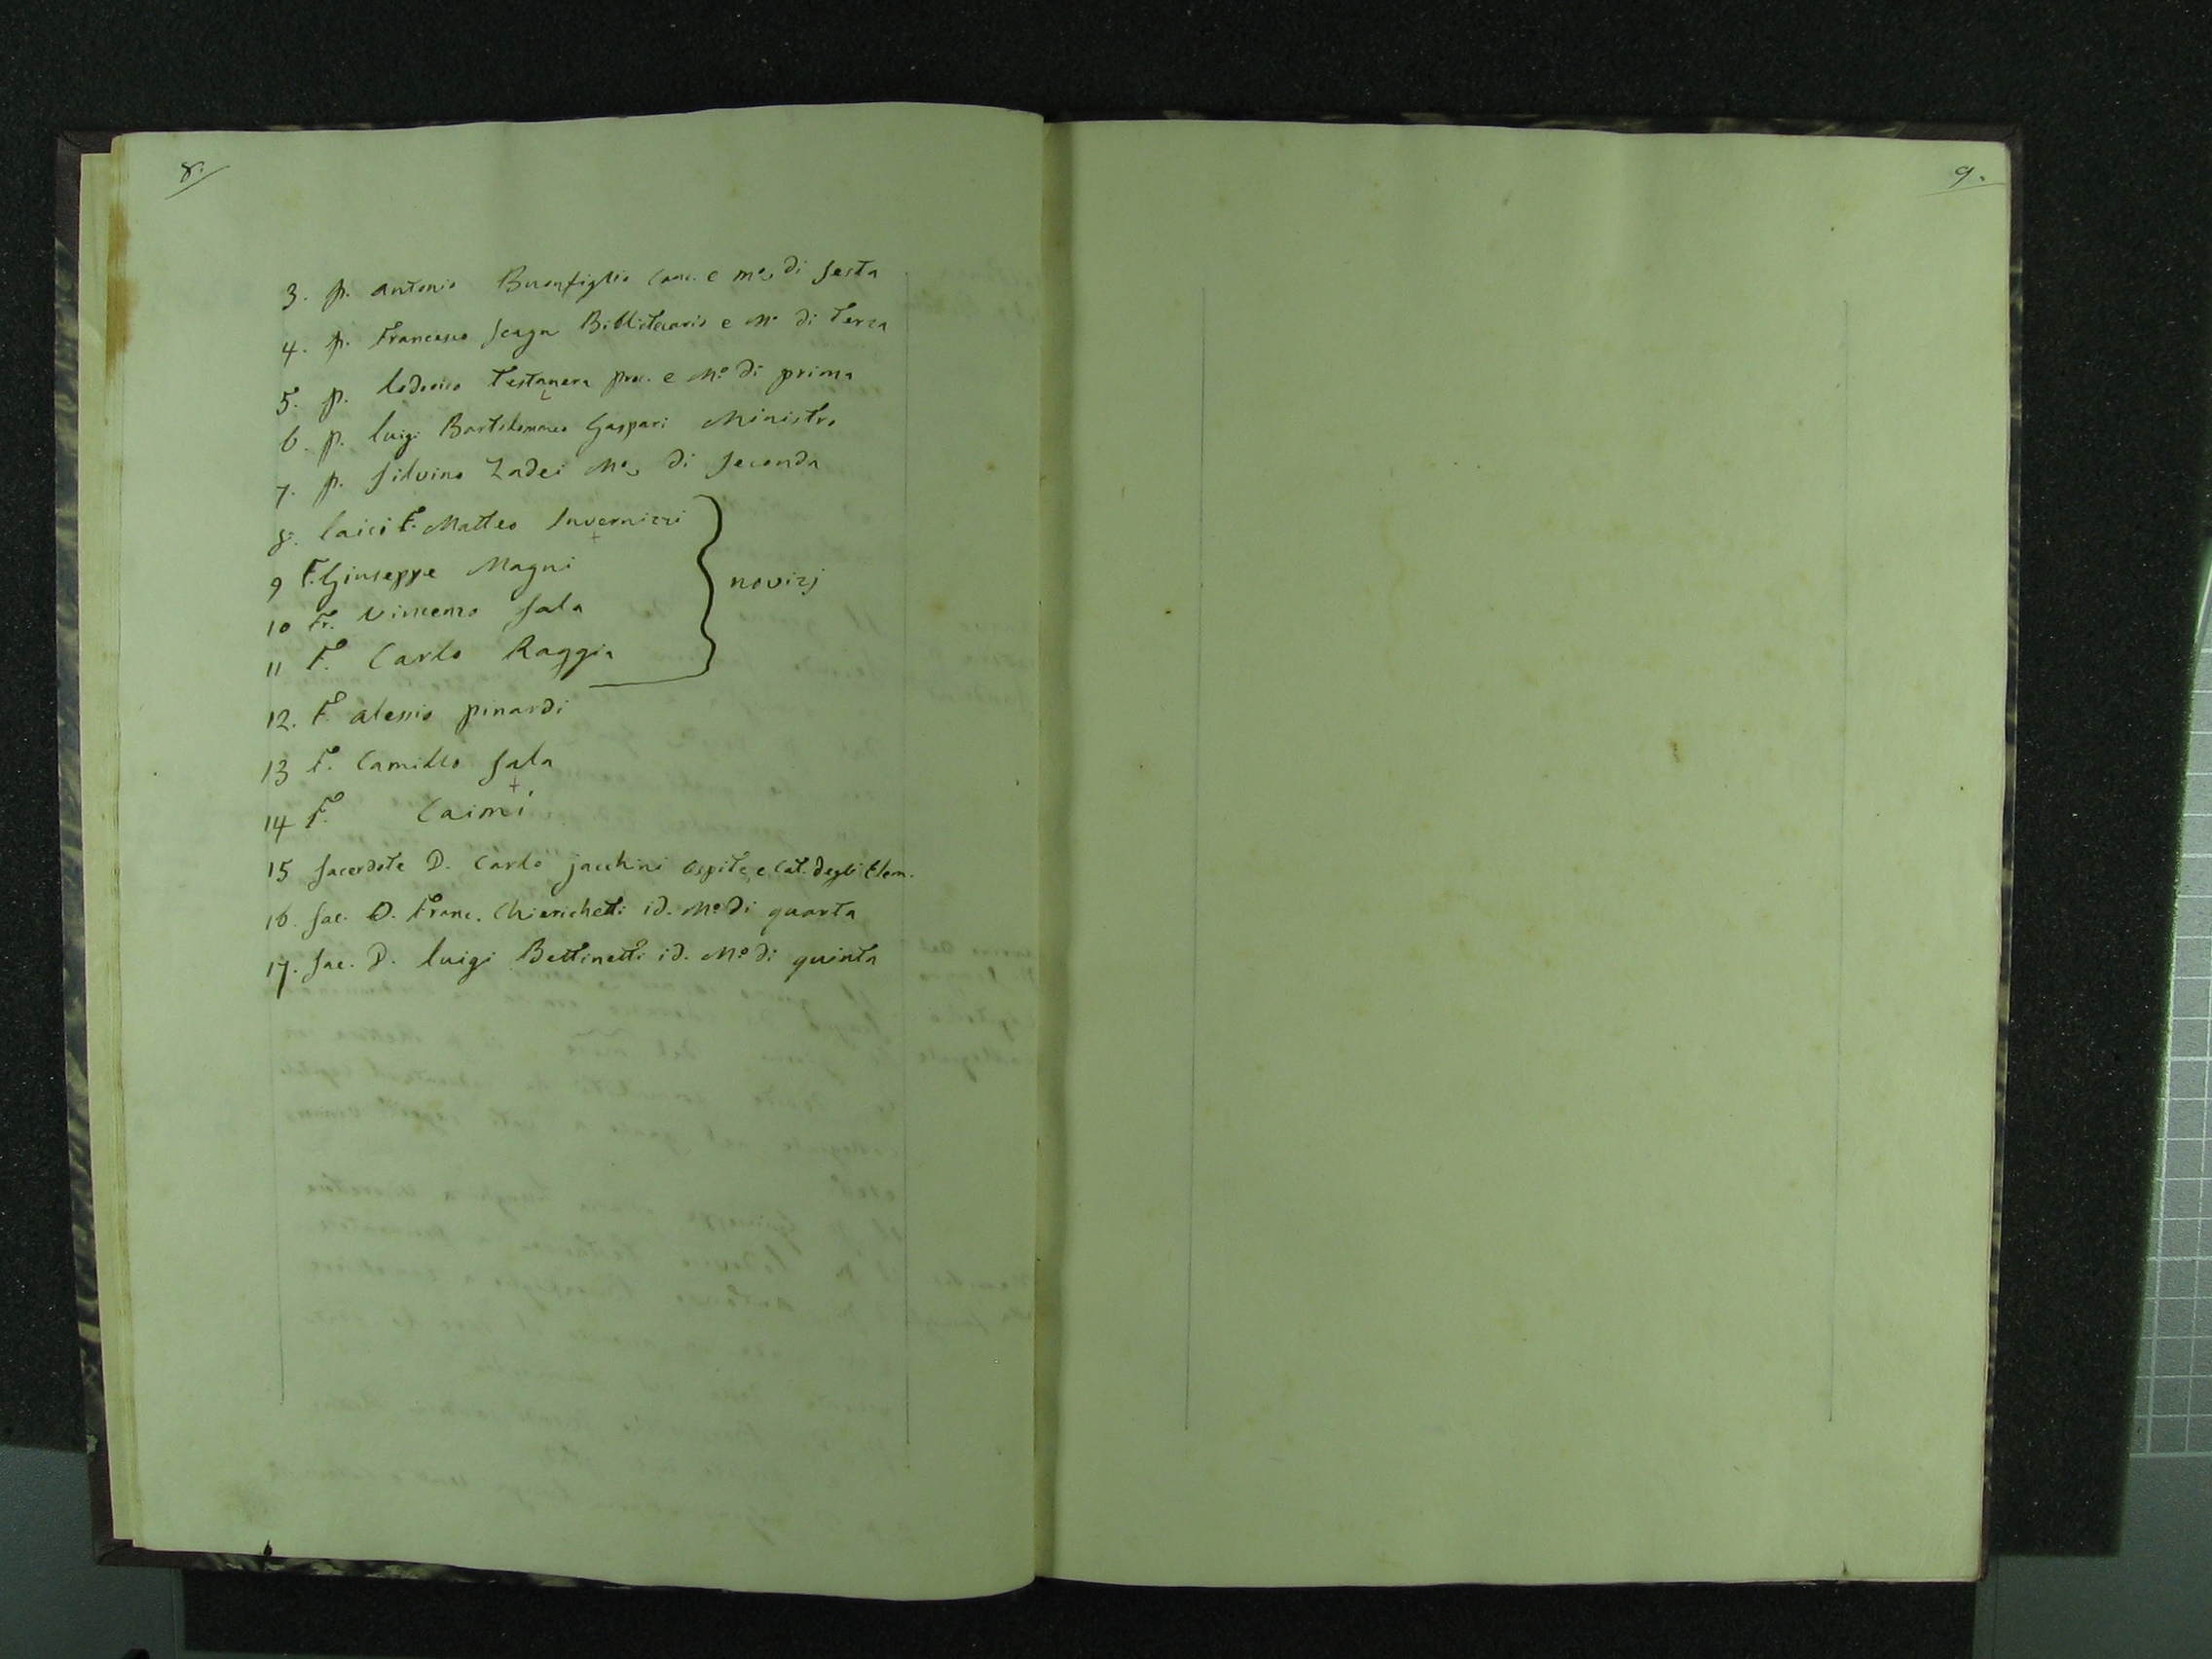 8.
3. p. Antonio Buonfiglio Canc. e Mo. di Sesta
4. p. Francesco Scagn Bibliotecario e Mo di Terza
5. p. Lodovico Testanera proc. e Mo di prima
6. p. Luigi Bartolommeo Gaspari Ministro
7. p. Silvino Zadei Mo. di Seconda
8. Laici F. Matteo Invernizzi
9 F. Giuseppe Magni
novizj
10 Fr. Vincenzo Sala
11 F. Carlo Raggia
12. F. Alessio Pinardi
13 F. Camillo Sala
14 F. Caimi
15 Sacerdote D. Carlo Jacchini Ospite, e Cat. degli Elem.
16. Sac. D. Franc. Chierichetti id. Mo di quarta
17. Sac. D. Luigi Bettinetti id. Mo di quinta
9.